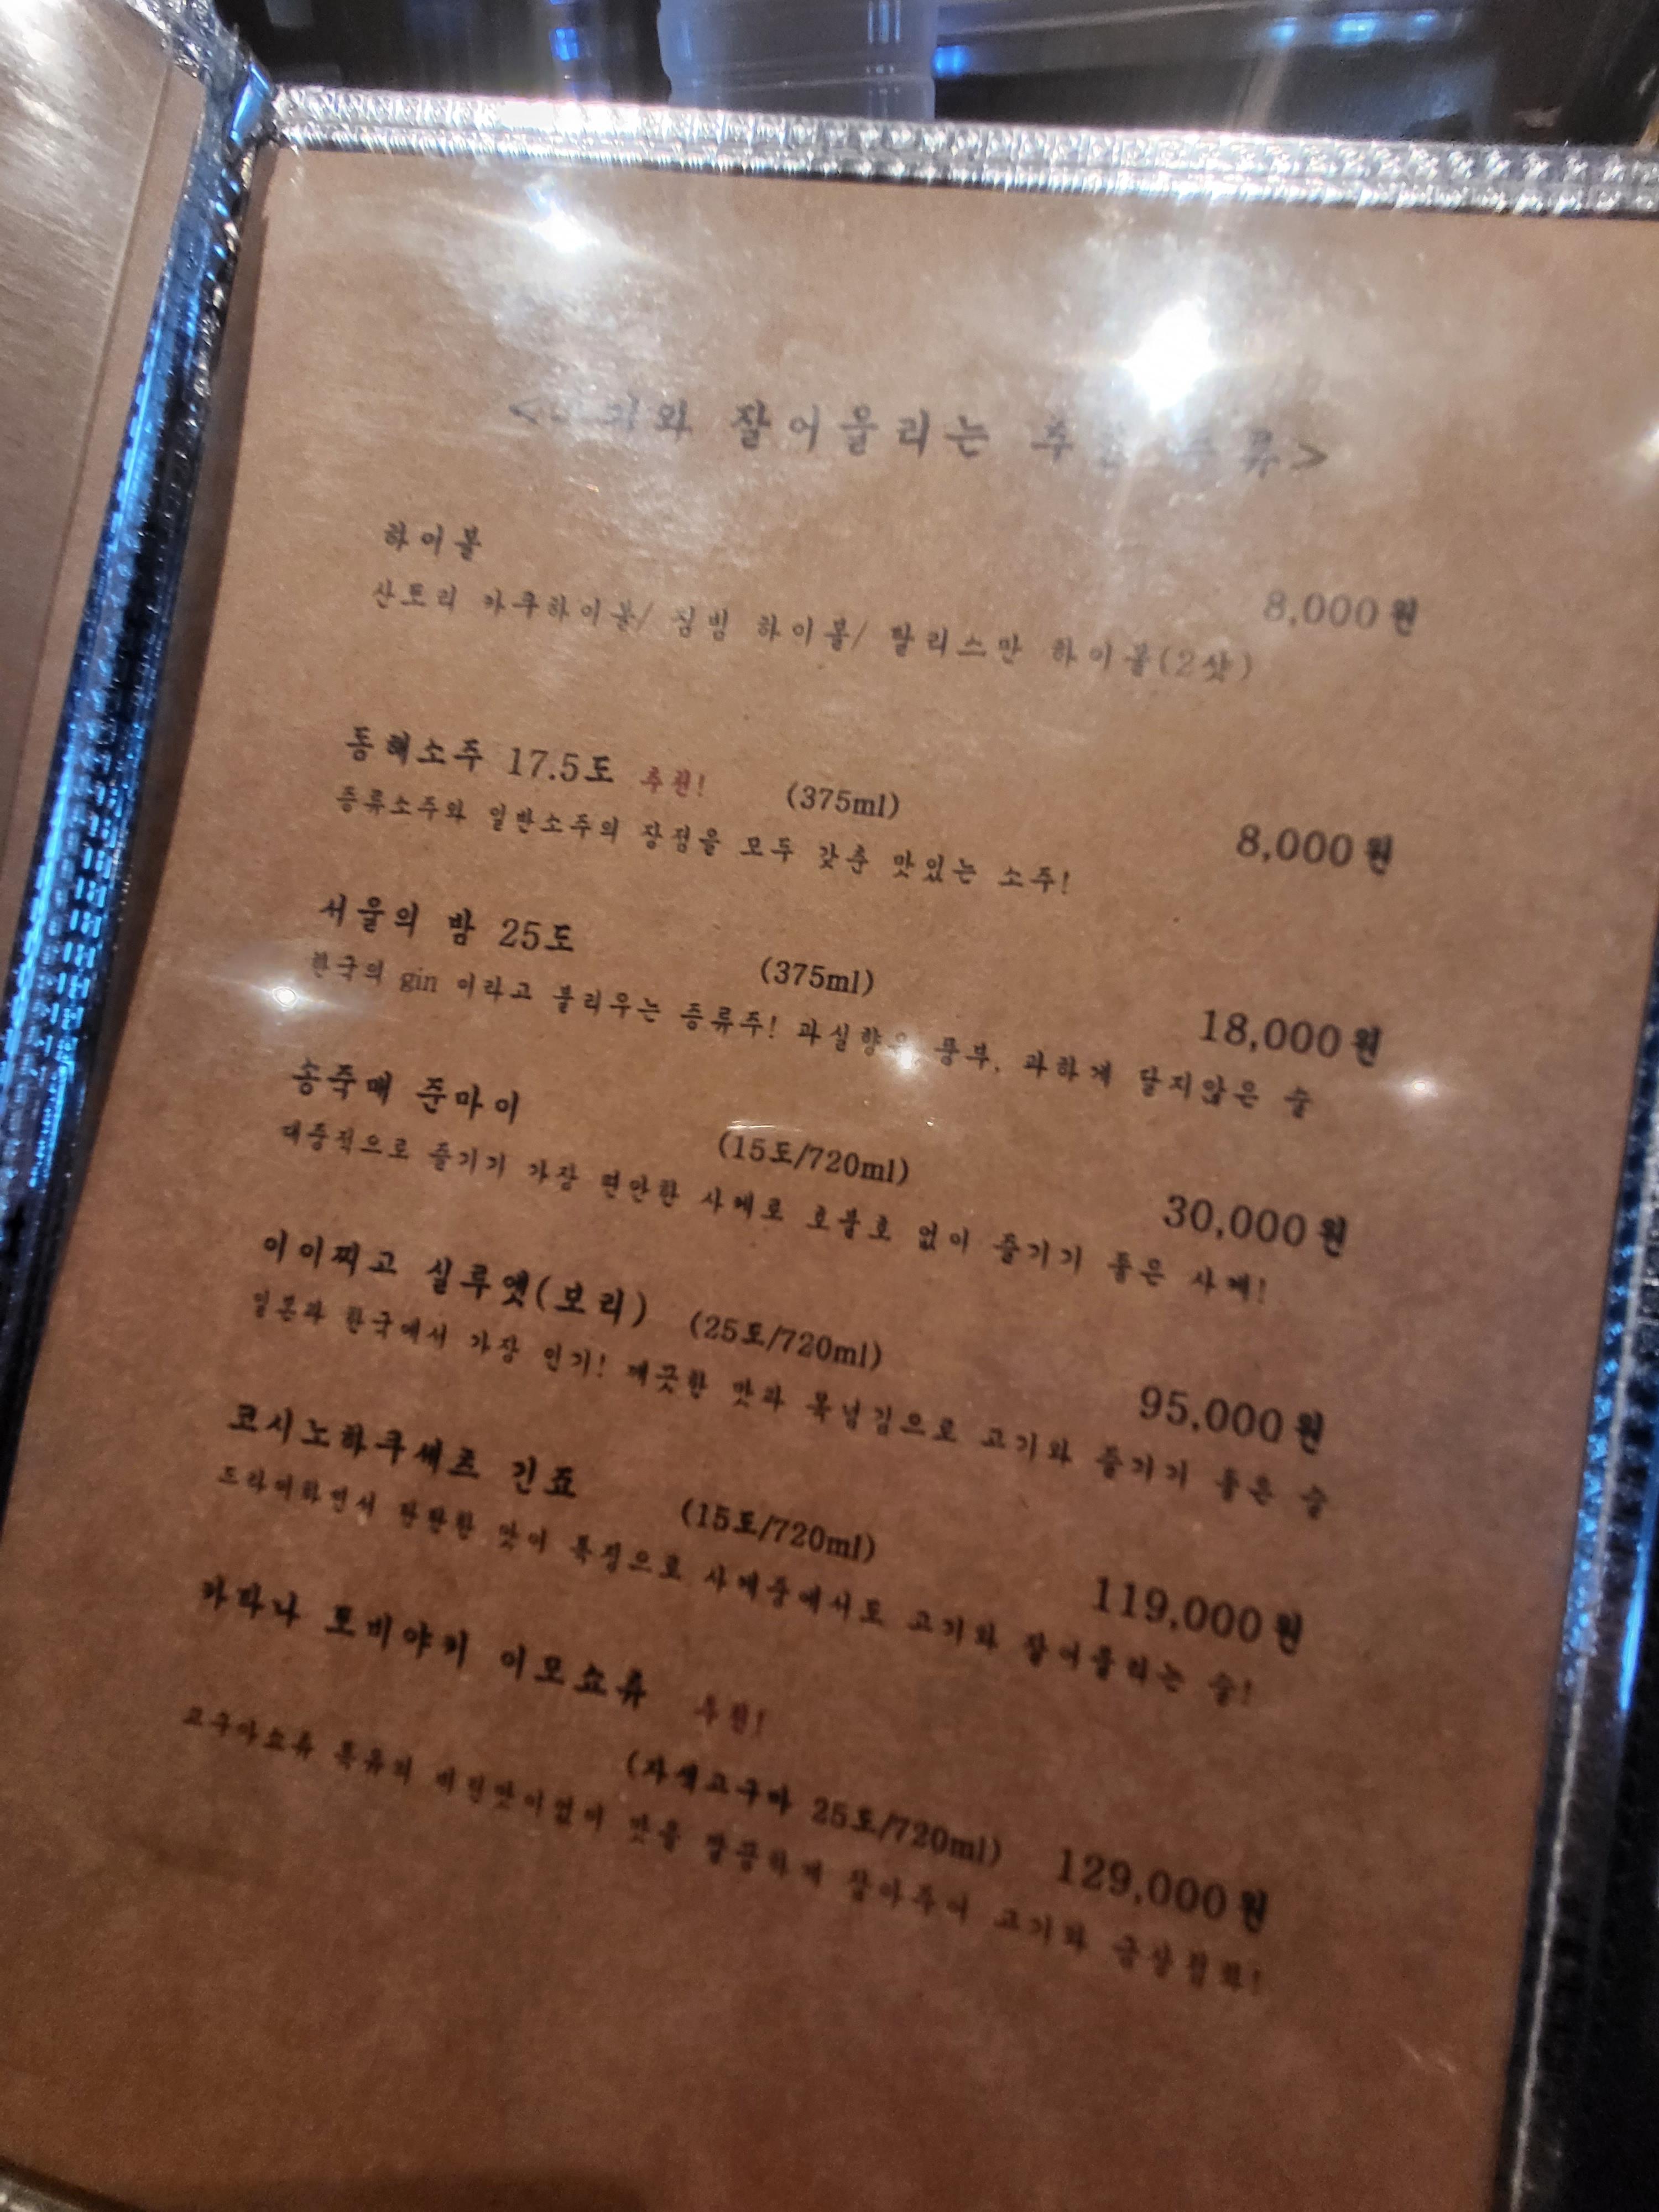 잘어울리는
하이볼
8,000원
산토리 카쿠하이볼/ 짐빔 하이볼/ 탈리스만 하이볼(2샷)
동해소주 17.5도 추천! (375ml)
8,000원
증류소주와 일반소주의 장점을 모두 갖춘 맛있는 소주!
서울의 밤 25도 (375ml)
18,000원
한국의 gin 이라고 불리우는 증류주! 과실향이 풍부, 과하게 달지않은 술
송죽매 준마이 (15도/720ml)
30,000원
대중적으로 즐기기 가장 편안한 사케로 호불호 없이 즐기기 좋은 사케!
이이찌고 실루엣(보리) (25도/720ml)
95,000원
일본과 한국에서 가장 인기! 깨끗한 맛과 목넘김으로 고기와 즐기기 좋은 술
코시노하쿠세츠 긴죠 (15도/720ml)
119,000원
드라이하면서 탄탄한 맛이 특징으로 사케중에서도 고기와 잘어울리는 술!
카타나 토비야키 이모쇼츄 추천!
(자색고구마 25도/720ml) 129,000원
고구마쇼츄 특유의 비린맛이없이 맛을 깔끔하게 잡아주어 고기와 금상첨화!